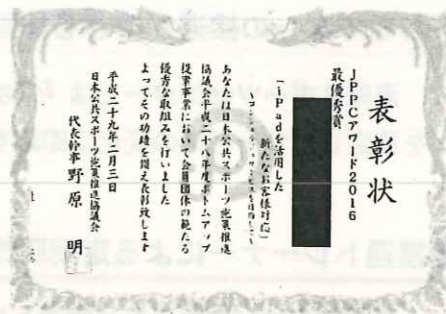 表彰状
JPPCアワード2016
最優秀賞
「iPadを活用した
新たなお客様対応」
あなたは日本公共スポーツ施設推進
協議会平成二十八年度ボトムアップ
提案事業において会員団体の範たる
優秀な取組みを行いました
よってその功績を讃え表彰致します
平成二十九年二月三日
日本公共スポーツ施設推進協議会
代表幹事 野原 明